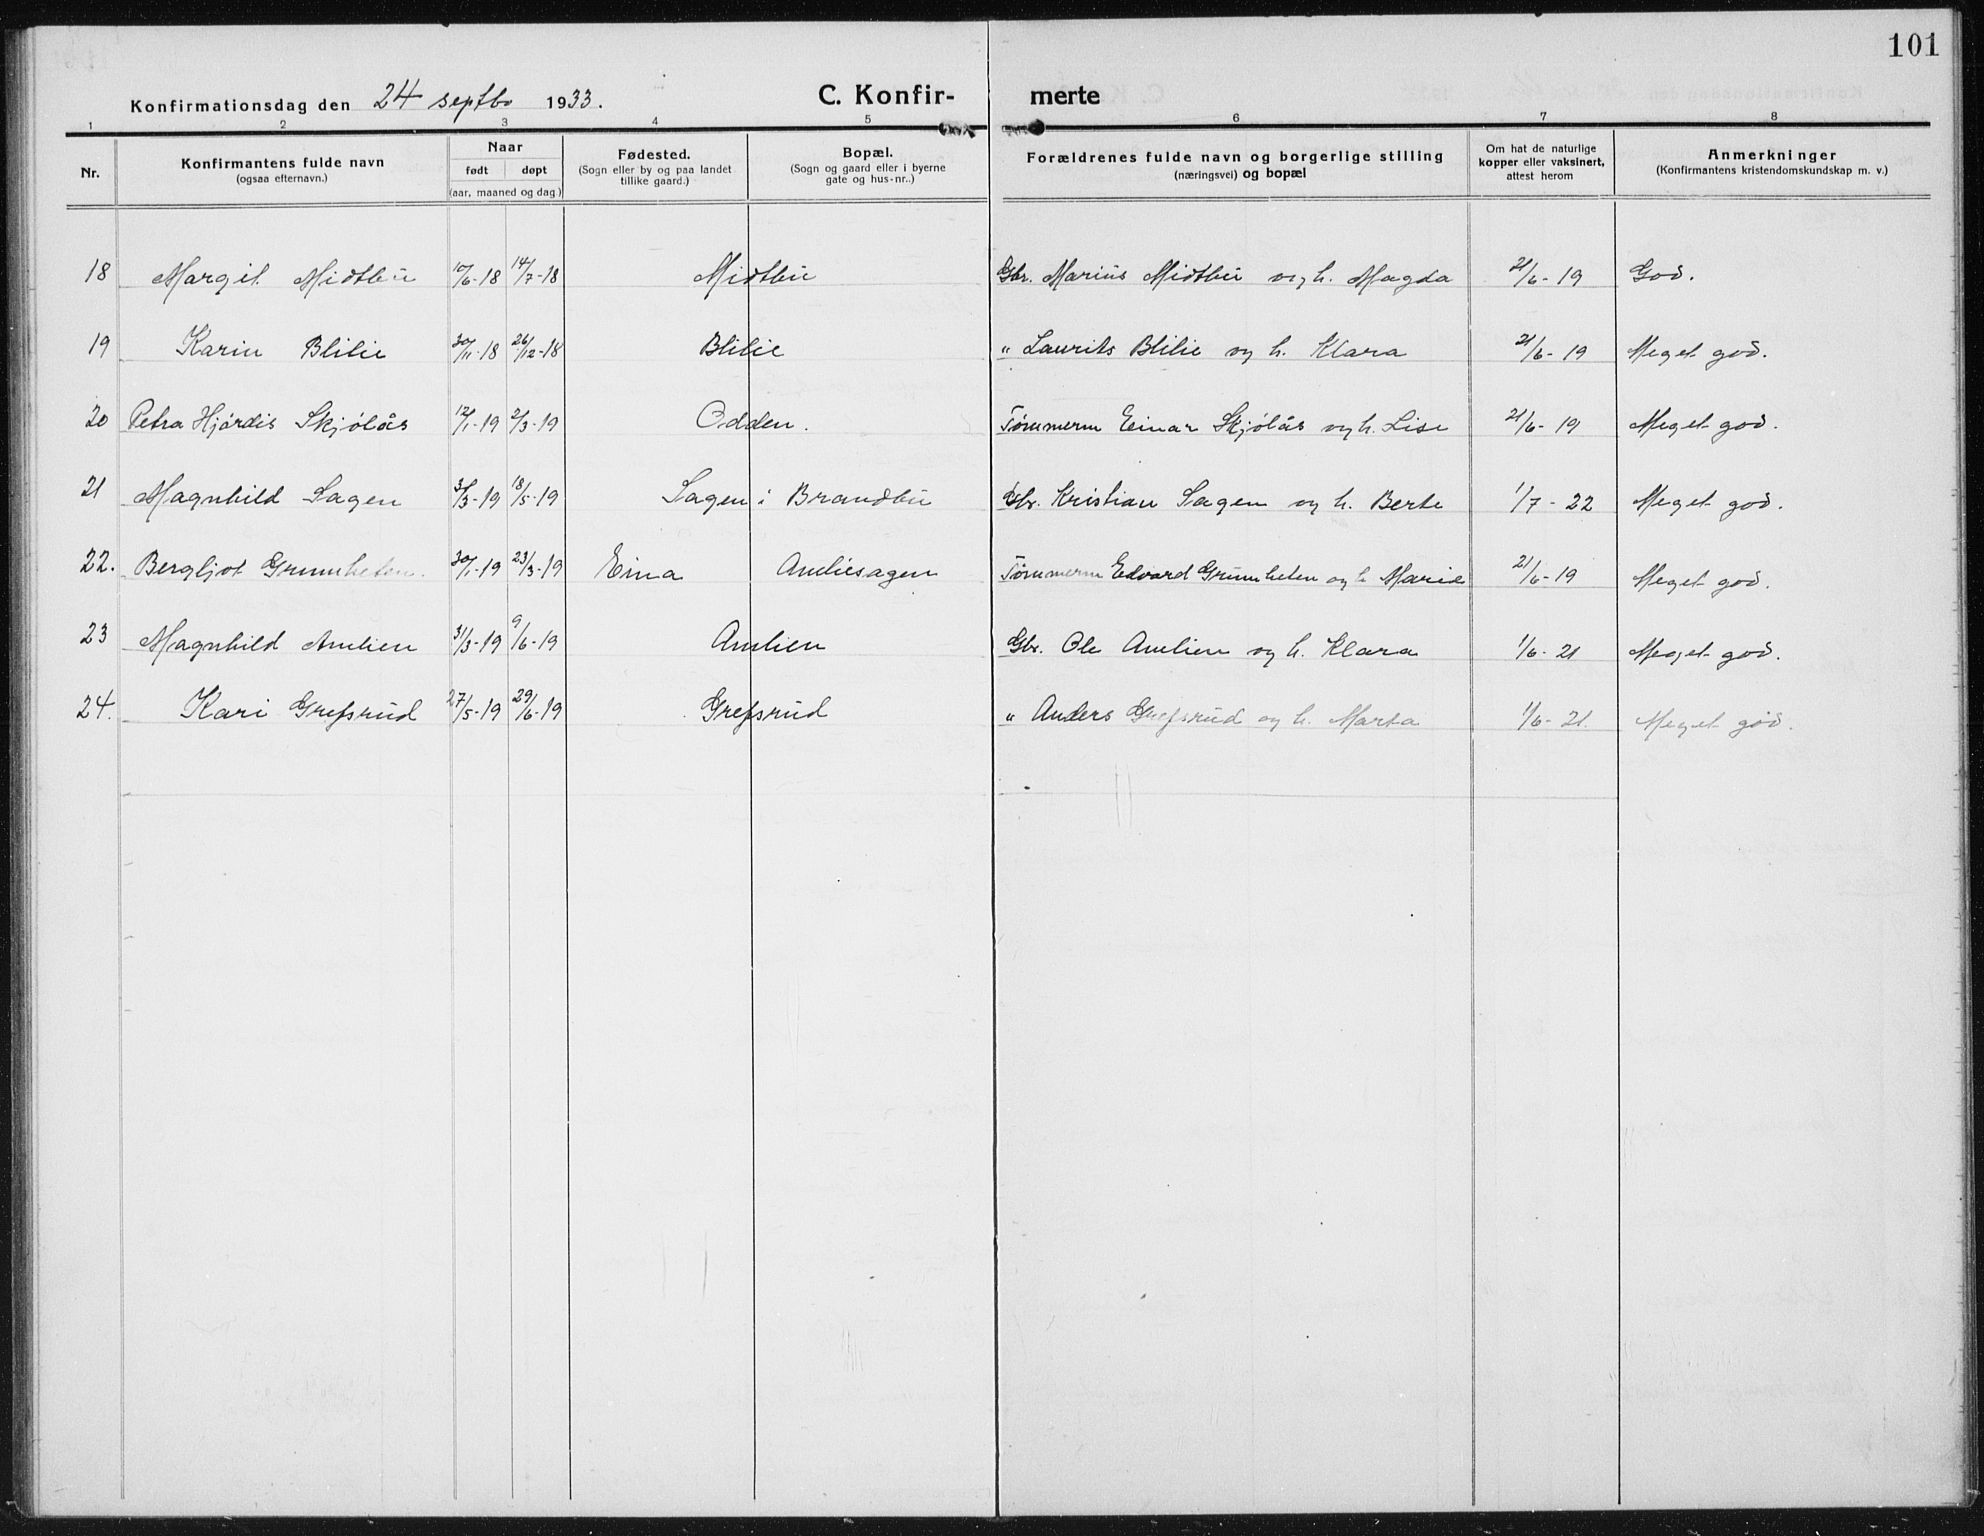 101
Konfirmationsdag den 24 septbr 1933. C. Konfirmerte
1 2 3 4 5 6 7 8
Nr. Konfirmantens fulde navn (ogsaa efternavn.) Naar født døpt (aar, maaned og dag.) Fødested. (Sogn eller by og paa landet tillike gaard.) Bopæl. (Sogn og gaard eller i byerne gate og hus-nr..) Forældrenes fulde navn og borgerlige stilling (næringsvei) og bopæl Om hat de naturlige kopper eller vaksinert, attest herom Anmerkninger (Konfirmantens kristendomskundskap m. v.)
18 Margit Midtbu 10/6-18 14/7-18 Midtbu Gbr. Marius Midtbu og h. Magda 21/6-19 God.
19 Karin Blilie 30/11-18 26/12-18 Blilie " Laurits Blilie og h. Klara 21/6-19 Meget god.
20 Petra Hjørdis Skjølås 12/1-19 2/3-19 Odden. Tømmerm Einar Skjølås og h. Lise 21/6-19 Meget god.
21 Magnhild Sagen 31/3-19 18/5-19 Sagen i Brandbu Gbr. Kristian Sagen og h. Berte 1/7-22 Meget god.
22. Bergljot Grumheten. 30/1-19 23/3-19 Eina Amliesagen Tømmerm Edvard Grumheten og h Marie 21/6-19 Meget god.
23 Magnhild Amlien 31/3-19 9/6-19 Amlien Gbr. Ole Amlien og h. Klara 1/6-21 Meget god.
24. Kari Grefsrud 27/5-19 29/6-19 Grefsrud " Anders Grefsrud og h. Marta 1/6-21. Meget god.